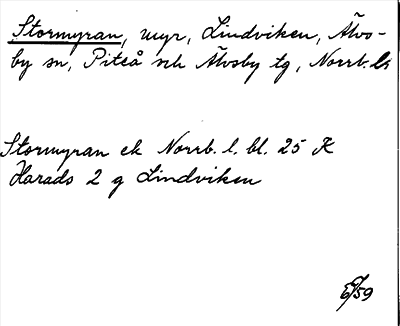 Stormyran, myr, Lindviken, Älvs-
by sn, Piteå och Älvsby tg, Norrb. l.
Stormyran ek Norrb. l. bl. 25 K
Harads 2 g Lindviken
/59